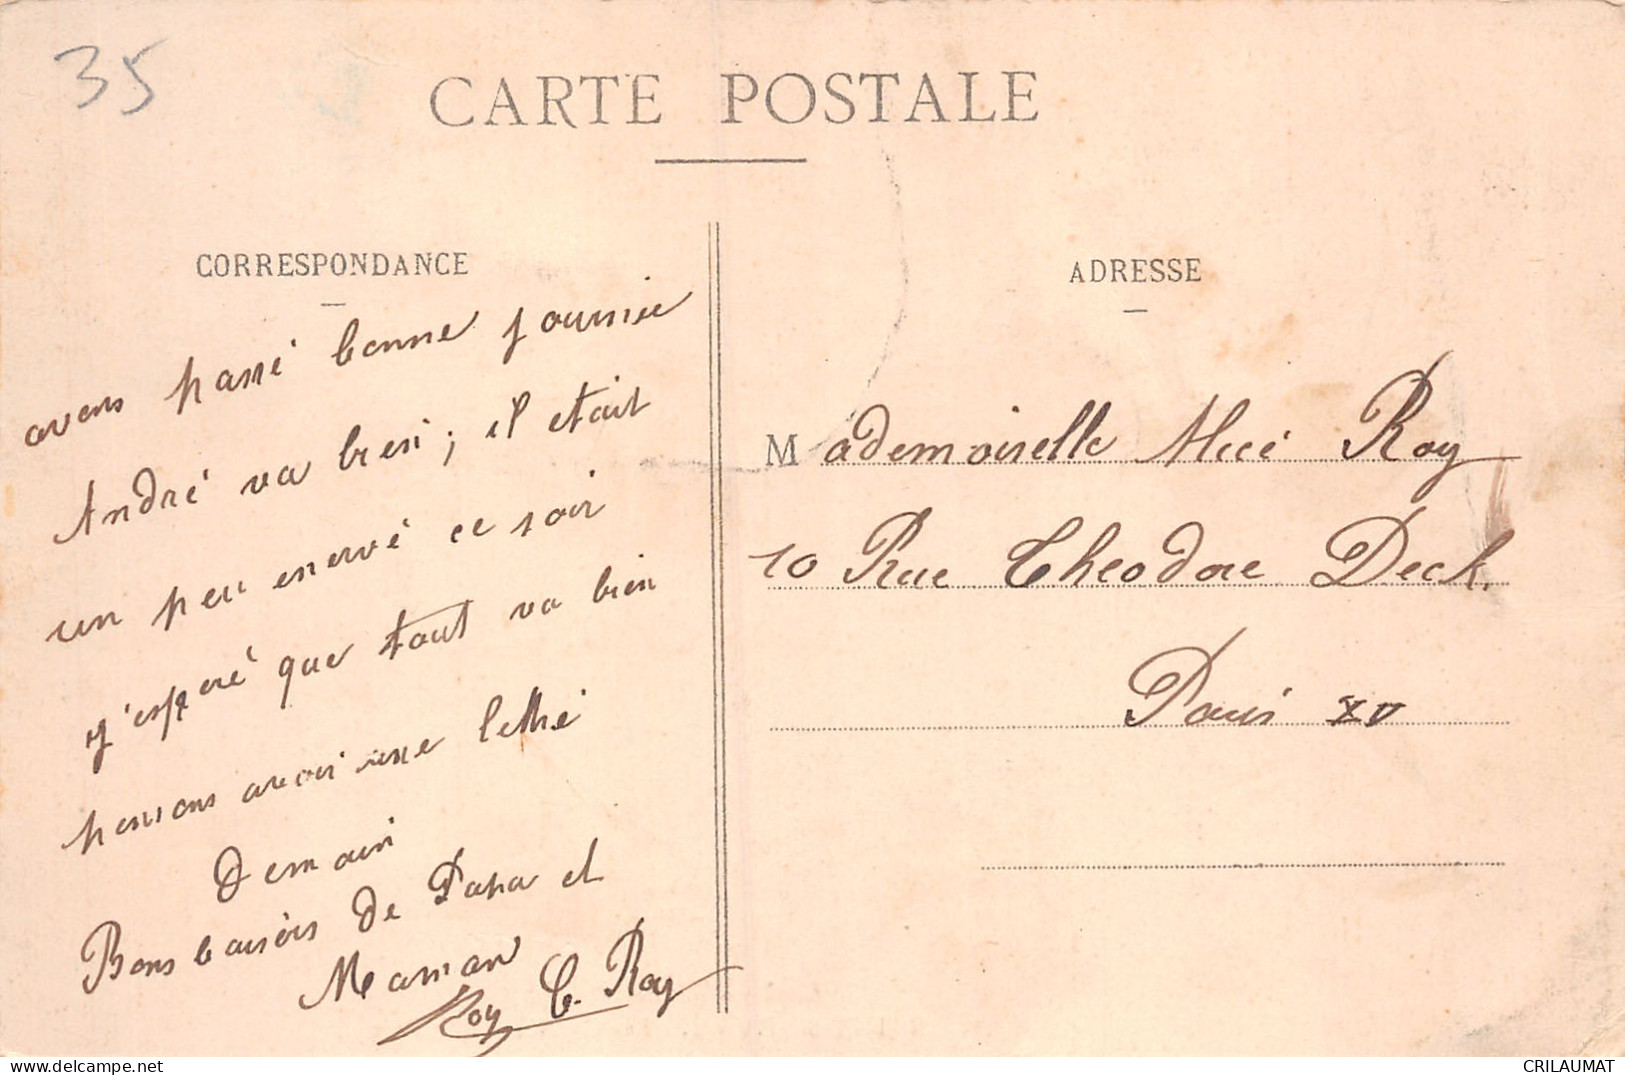 35
CARTE POSTALE
CORRESPONDANCE
avons passé bonne journée
André va bien; il était
un peu enervé ce soir
j'esperé que tout va bien
pensons avoir une lettre
Demain
Bons baisers de Papa et
Maman
Roy C. Roy
ADRESSE
Mademoiselle Alice Roy
10 Rue Theodore Deck.
Paris XV
CRILAUMAT